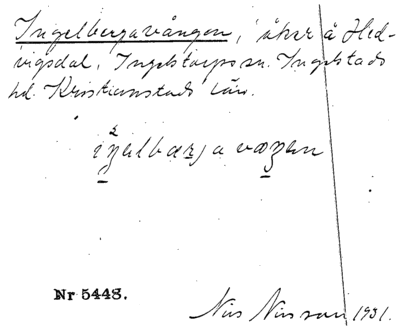 Ingelbergavången, åker å Hed-
vigsdal, Ingelstorps sn. Ingelstads
hd. Kristianstads län.
Nr 5448.
Nils Nilsson 1931.